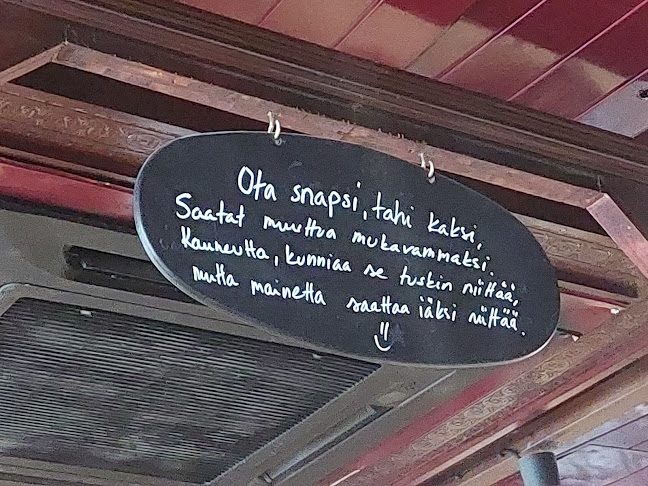 Ota snapsi, tahi kaksi,
Saatat muuttua mukavammaksi.
Kauneutta, kunniaa se tuskin niittää,
mutta mainetta saattaa iäksi niittää.